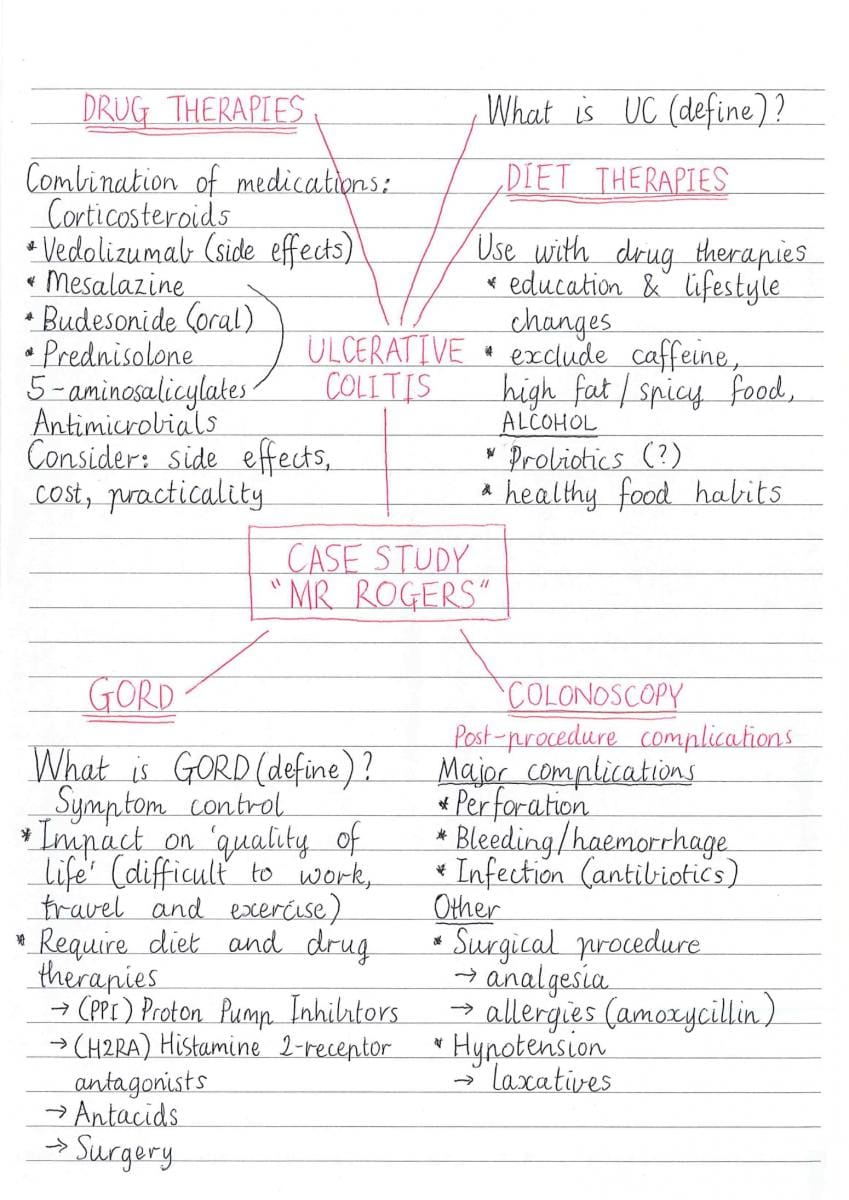 DRUG THERAPIES
Combination of medications:
Corticosteroids
* Vedolizumab (side effects)
* Mesalazine
* Budesonide (oral)
* Prednisolone
5-aminosalicylates
Antimicrobials
Consider: side effects,
cost, practicality
What is UC (define)?
DIET THERAPIES
Use with drug therapies
* education & lifestyle
changes
* exclude caffeine,
high fat / spicy food,
ALCOHOL
* Probiotics (?)
* healthy food habits
ULCERATIVE
COLITIS
CASE STUDY
"MR ROGERS"
GORD
What is GORD (define)?
Symptom control
* Impact on 'quality of
life' (difficult to work,
travel and excercise)
* Require diet and drug
therapies
→ (PPI) Proton Pump Inhibitors
→ (H2RA) Histamine 2-receptor
antagonists
→ Antacids
→ Surgery
COLONOSCOPY
Post-procedure complications
Major complications
* Perforation
* Bleeding/haemorrhage
* Infection (antibiotics)
Other
* Surgical procedure
→ analgesia
→ allergies (amoxycillin)
* Hypotension
→ laxatives